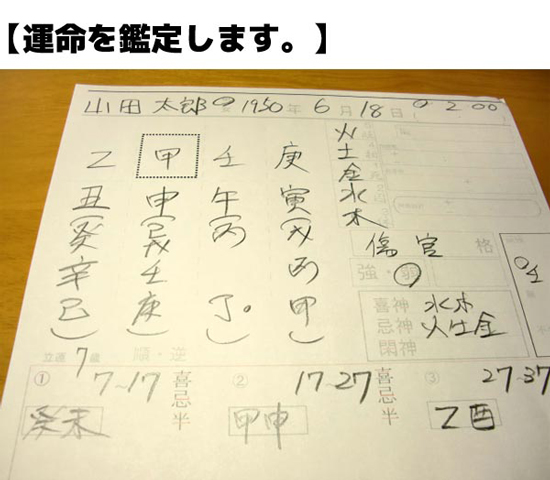 【運命を鑑定します。】
山田 太郎 1950年 6月 18日 2 00
乙 甲 壬 庚
丑 申 午 寅
(癸 (戊 (丙 (戊
辛 壬 丙
己) 庚) 丁。) 甲)
火
土
金
水
木
傷官 格
強・弱
喜神 水木
忌神 火土金
閑神
立運 7歳 順・逆
① 7~17 喜忌半 ② 17~27 喜忌半 ③ 27-37
癸未 甲申 乙酉